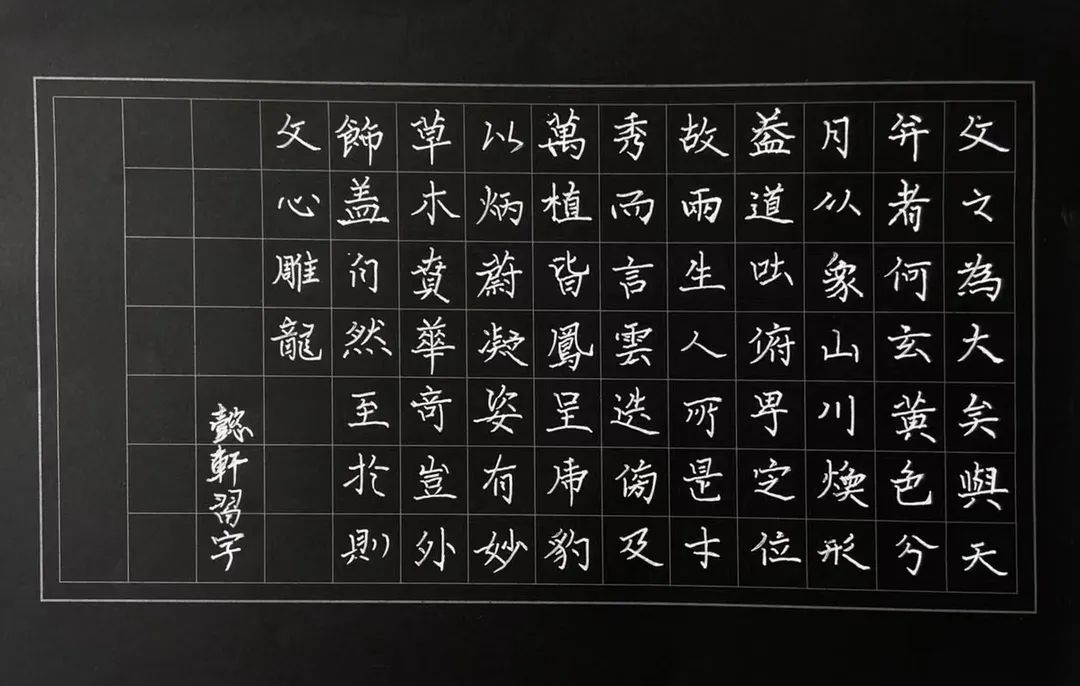 文之為大矣與天
并者何玄黃色兮
月从象山川煥形
葢道吐俯卑定位
故兩生人所是才
秀而言雲迭傍及
萬植皆鳳呈虎豹
以炳蔚凝姿有妙
草木賁華奇豈外
飾盖然至於則
文心雕龍
懿軒習字